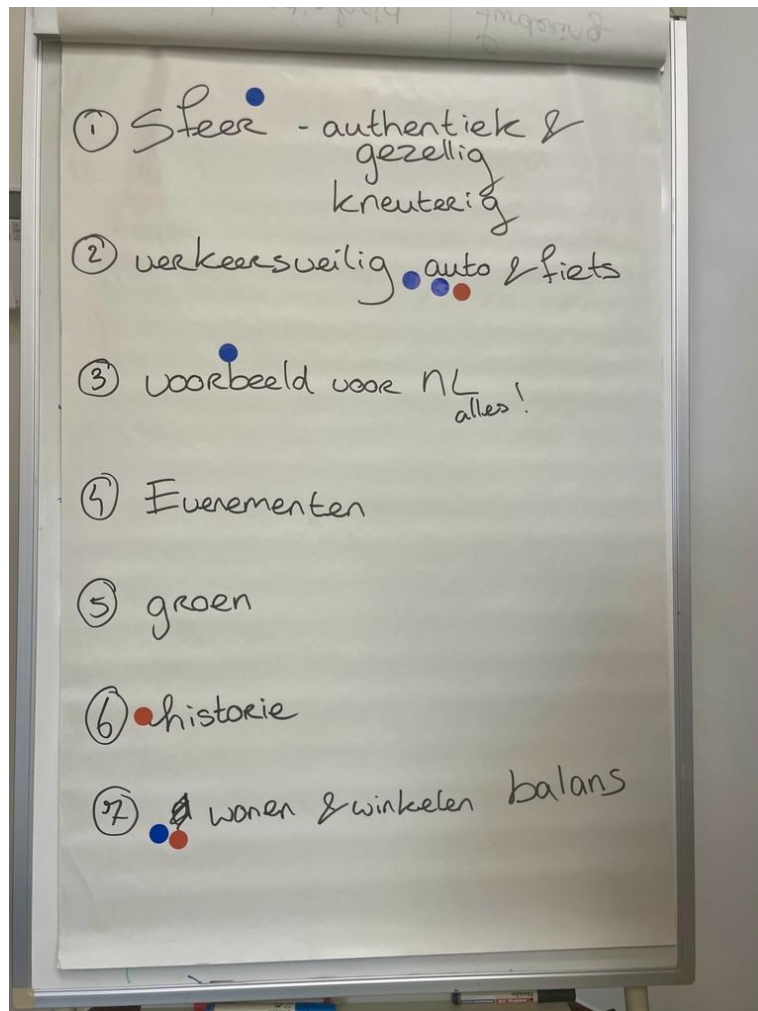 ① Sfeer - authentiek &
gezellig
kneuterig
② verkeersveilig auto & fiets
③ voorbeeld voor NL
alles!
④ Evenementen
⑤ groen
⑥ historie
⑦ wonen & winkelen balans